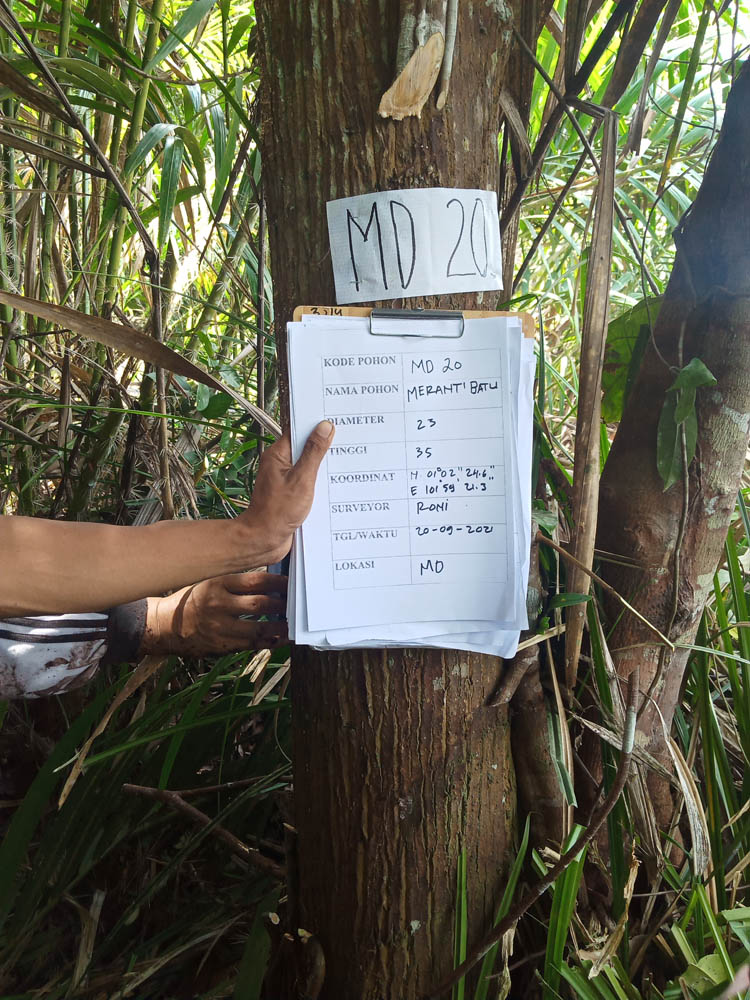 MD 20
KODE POHON MD 20
NAMA POHON MERANTI BATU
DIAMETER 23
TINGGI 35
KOORDINAT N 01° 02" 24.6"
E 101° 59' 21.3"
SURVEYOR RONI
TGL/WAKTU 20-09-2021
LOKASI MD